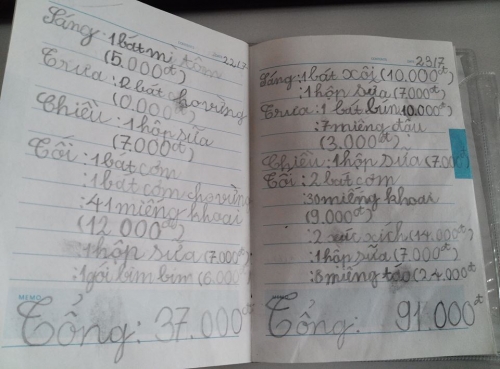 22/7
Sáng: 1 bát mì tôm
(5.000đ)
Trưa: 2 bát cháo vừng
(0.000đ)
Chiều: 1 hộp sữa
(7.000đ)
Tối: 1 bát cơm
: 1 bát cơm cho vừng
: 41 miếng khoai
(12 000đ)
: 1 hộp sữa (7.000đ)
: 1 gói bim bim (6.000đ)
MEMO
Tổng: 37.000đ
23/7
Sáng: 1 bát xôi (10.000đ)
: 1 hộp sữa (7000đ)
Trưa: 1 bát bún 10.000đ
: 7 miếng đậu
(3.000đ)
Chiều: 1 hộp sữa (7.000
Tối: 2 bát cơm
: 30 miếng khoai
(9.000đ)
: 2 xúc xích (14.000đ)
: 1 hộp sữa (7.000đ)
: 8 miếng táo (24.000đ
Tổng: 91.000đ